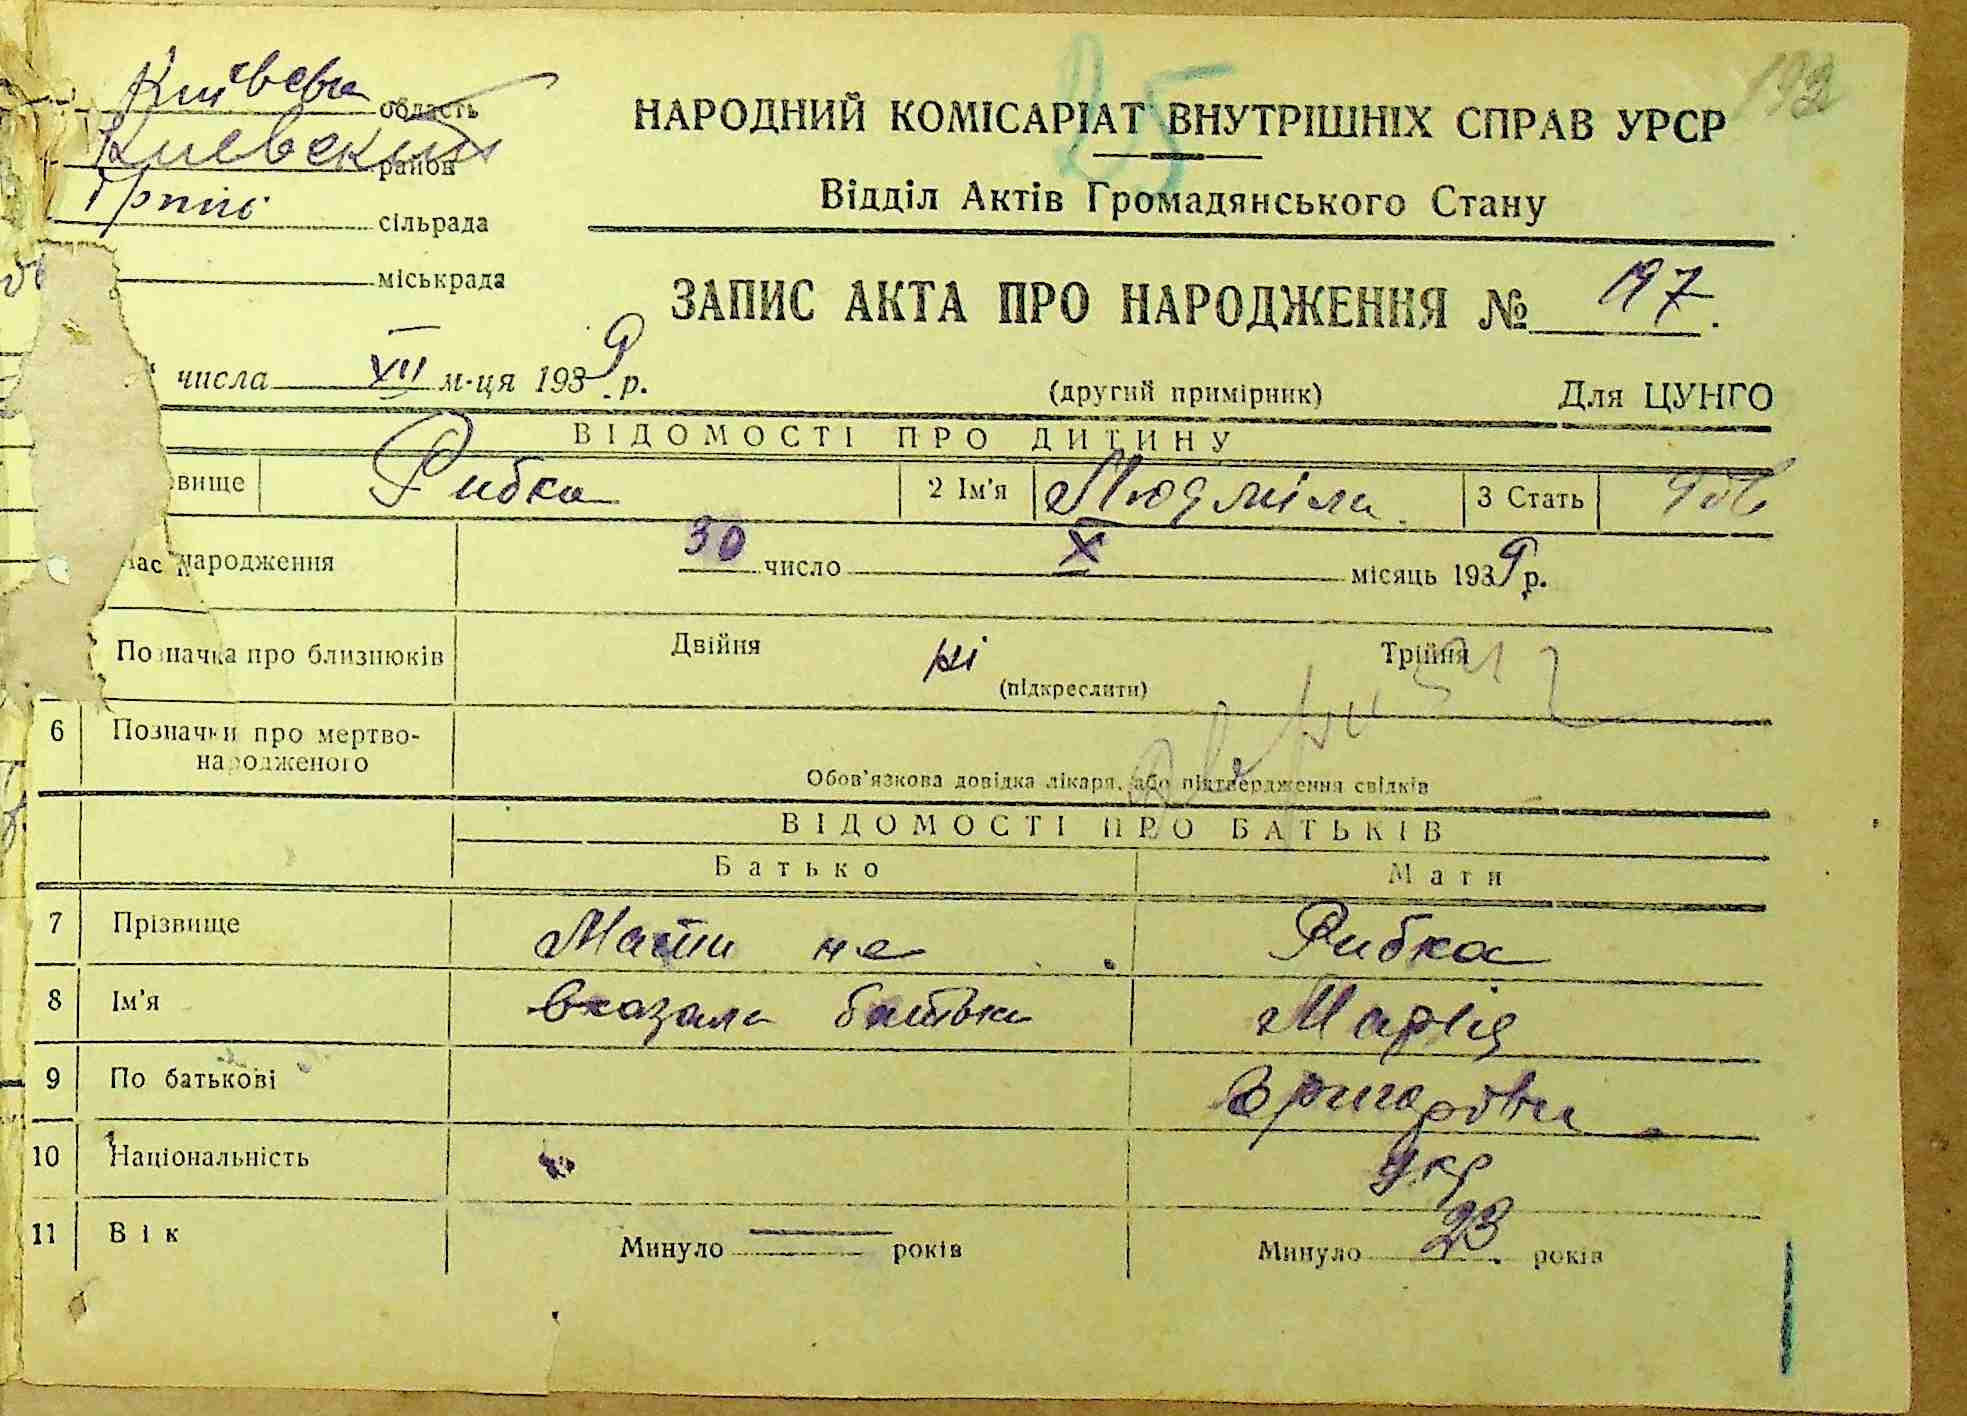 Київська область
Киевский район
Ірпінь сільрада
міськрада
192
25
НАРОДНИЙ КОМІСАРІАТ ВНУТРІШНІХ СПРАВ УРСР
Відділ Актів Громадянського Стану
ЗАПИС АКТА ПРО НАРОДЖЕННЯ № 197.
числа XII м-ця 1939 р.
(другий примірник) Для ЦУНГО
ВІДОМОСТІ ПРО ДИТИНУ
вище Рибка 2 Ім'я Людміла 3 Стать
час народження 30 число X місяць 1939 р.
Позначка про близнюків Двійня ні Трійня
(підкреслити)
6 Позначки про мертво-
народженого
Обов'язкова довідка лікаря, або підтвердження свідків
ВІДОМОСТІ ПРО БАТЬКІВ
Батько Мати
7 Прізвище Мати не Рибка
8 Ім'я вказала батька Марія
9 По батькові Григоровна
10 Національність укр
11 Вік Минуло — років Минуло 23 років